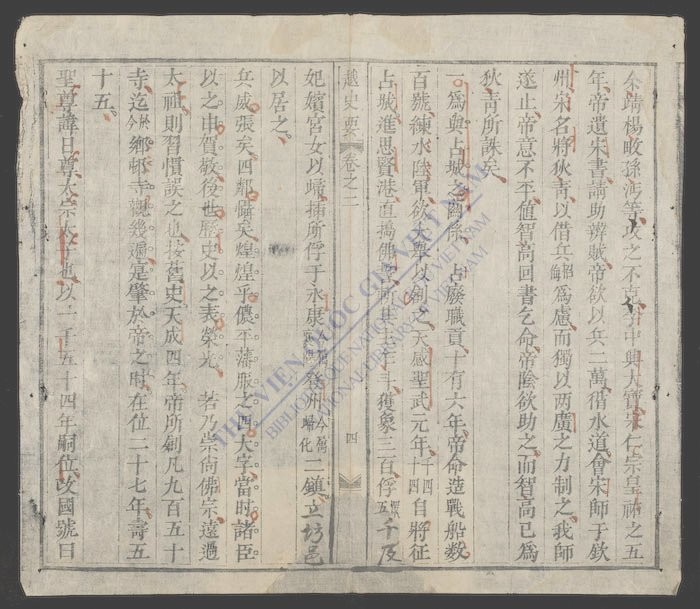 余靖楊畋孫沔等攻之不克帝中興大寶宋仁宗皇祐之五
年帝遺宋書請助辦賊帝欲以兵二萬循水道會宋師于欽
州宋名將狄青以借兵招侮爲慮而獨以两廣之力制之我師
遂止帝意不平値智高回書乞命帝陰欲助之而智高已爲
狄青所誅矣
一爲與占城之關係占廢職貢十有六年帝命造戰船數
百號練水陸軍欲一舉以創之天感聖武元年千四十四自將征
占城進思賢港直搗佛誓斬其主乍斗獲象三百俘五千及
越史要 卷之二 四
妃嬪宮女以歸捕所俘于永康登州今歸化二鎮立坊邑
以居之
兵威張矣四鄰懾矣煌煌乎儂平藩服之四大字當時諸臣
以之申賀敬後世歷史以之表榮光若乃崇尙佛宗遠過
太祖則習慣誤之也按舊史天成四年帝所創凡九百五十
寺迄於今鄉邨寺觀幾遍是肇於帝之時在位二十七年壽五
十五
聖尊諱日尊太宗太子也以一千五十四年嗣位改國號曰
THƯ VIỆN QUỐC GIA VIỆT NAM
BIBLIOTHEQUE NATIONALE DU VIETNAM
NATIONAL LIBRARY OF VIETNAM